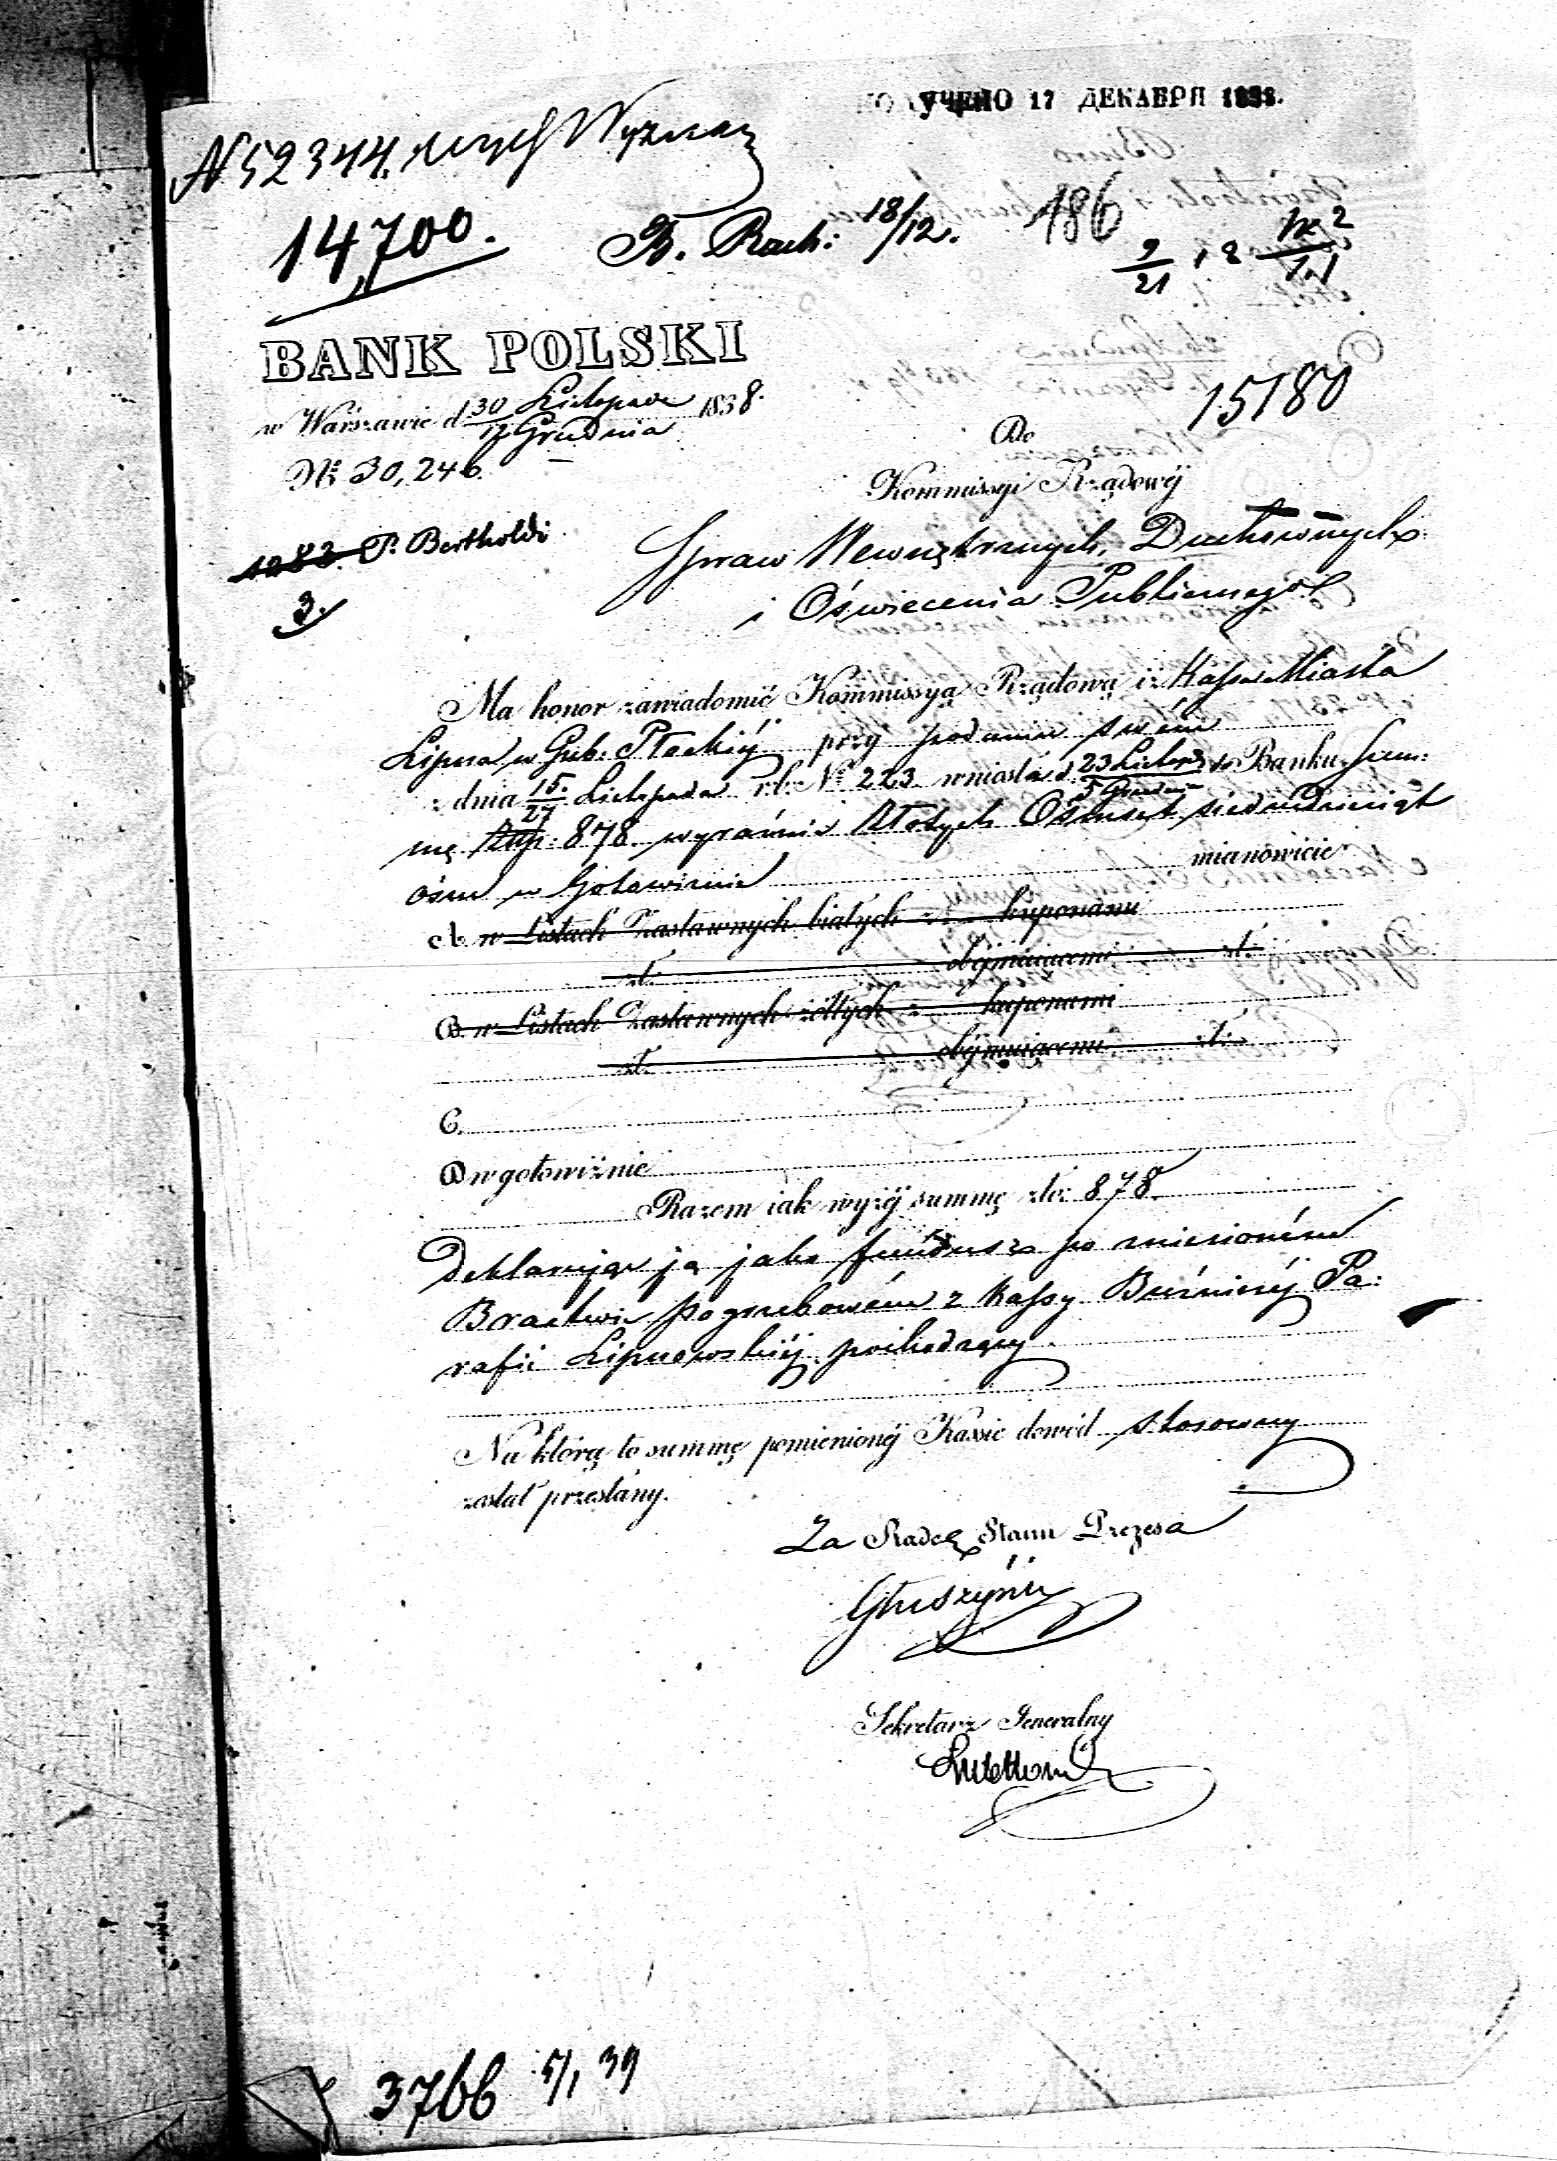 ПОЛУЧЕНО 17 ДЕКАБРЯ 1838.
N 52344. Wyznań
14,700.
B. Rach: 18/12.
186
9/21 12
BANK POLSKI
w Warszawie d 30 Listopada / 12 Grudnia 1838.
№ 30,246.
15180
Do
Kommissyi Rządowéj
1283. P. Bertholdi
Spraw Wewnętrznych, Duchownych
3.
i Oświecenia Publicznego
Ma honor zawiadomić Kommissyą Rządową iż Kassa Miasta
Lipna w Gub: Płockiéj przy podaniu swém
z dnia 15/27 Listopada r.b. № 223 wniosła d. 23 Listop / 5 Grudnia do Banku Sum:
mę Złtp: 878. wyraźnie Złotych Ośmset siedmdziesiąt
ośm w Gotowiznie mianowicie
A. w Listach Zastawnych białych z kuponami
zł. obéjmuiącemi zł:
B. w Listach Zastawnych żółtych z kuponami
zł. obéjmuiącemi zł:
C.
D w gotowiźnie
Razem iak wyżéj summę złt: 878.
Deklarując ją jako fundusz po zniesioném
Bractwie pogrzebowém z Kassy Bużniczéj Pa:
rafii Lipnowskiéj pochodzący.
Na którą to summę pomienionéj Kassie dowód stosowny
został przesłany.
Za Radcę Stanu Prezesa
Głuszyński
Sekretarz Generalny
3766 5/1 39